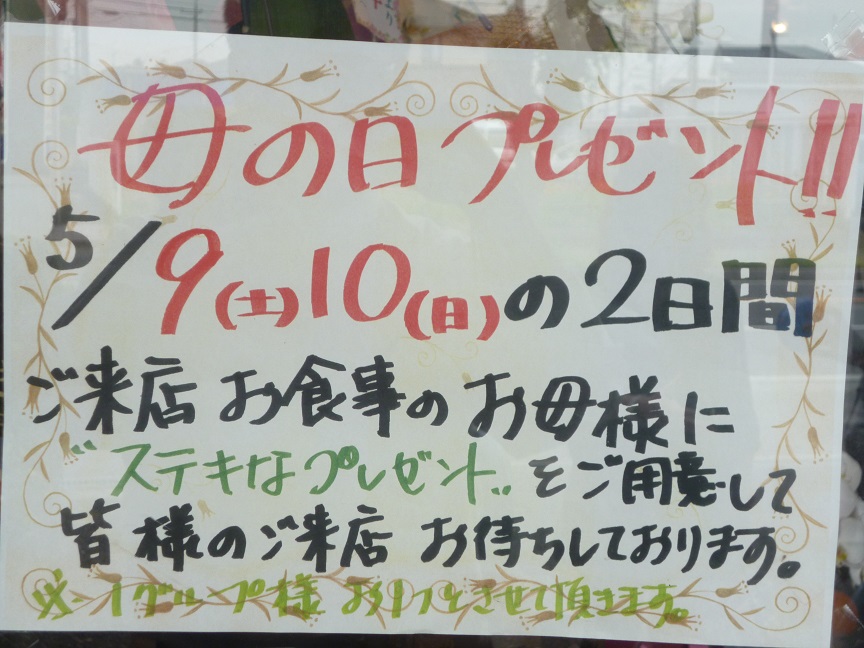 母の日プレゼント!!
5/9(土)10(日)の2日間
ご来店 お食事の お母様に
"ステキなプレゼント"をご用意して
皆様のご来店 お待ちしております。
※1グループ様 お1つとさせて頂きます。